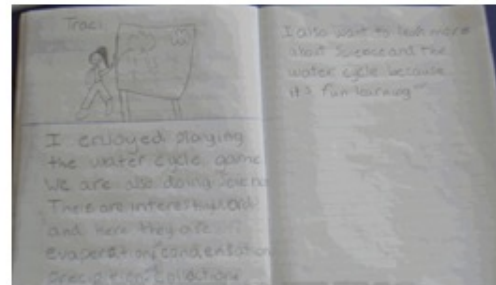 Traci
I enjoyed playing
the water cycle game
We are also doing Science
These are interesting words
and here they are
evaporation, condensation
precipitation, collection
I also want to learn more
about Science and the
water cycle because
it's fun learning